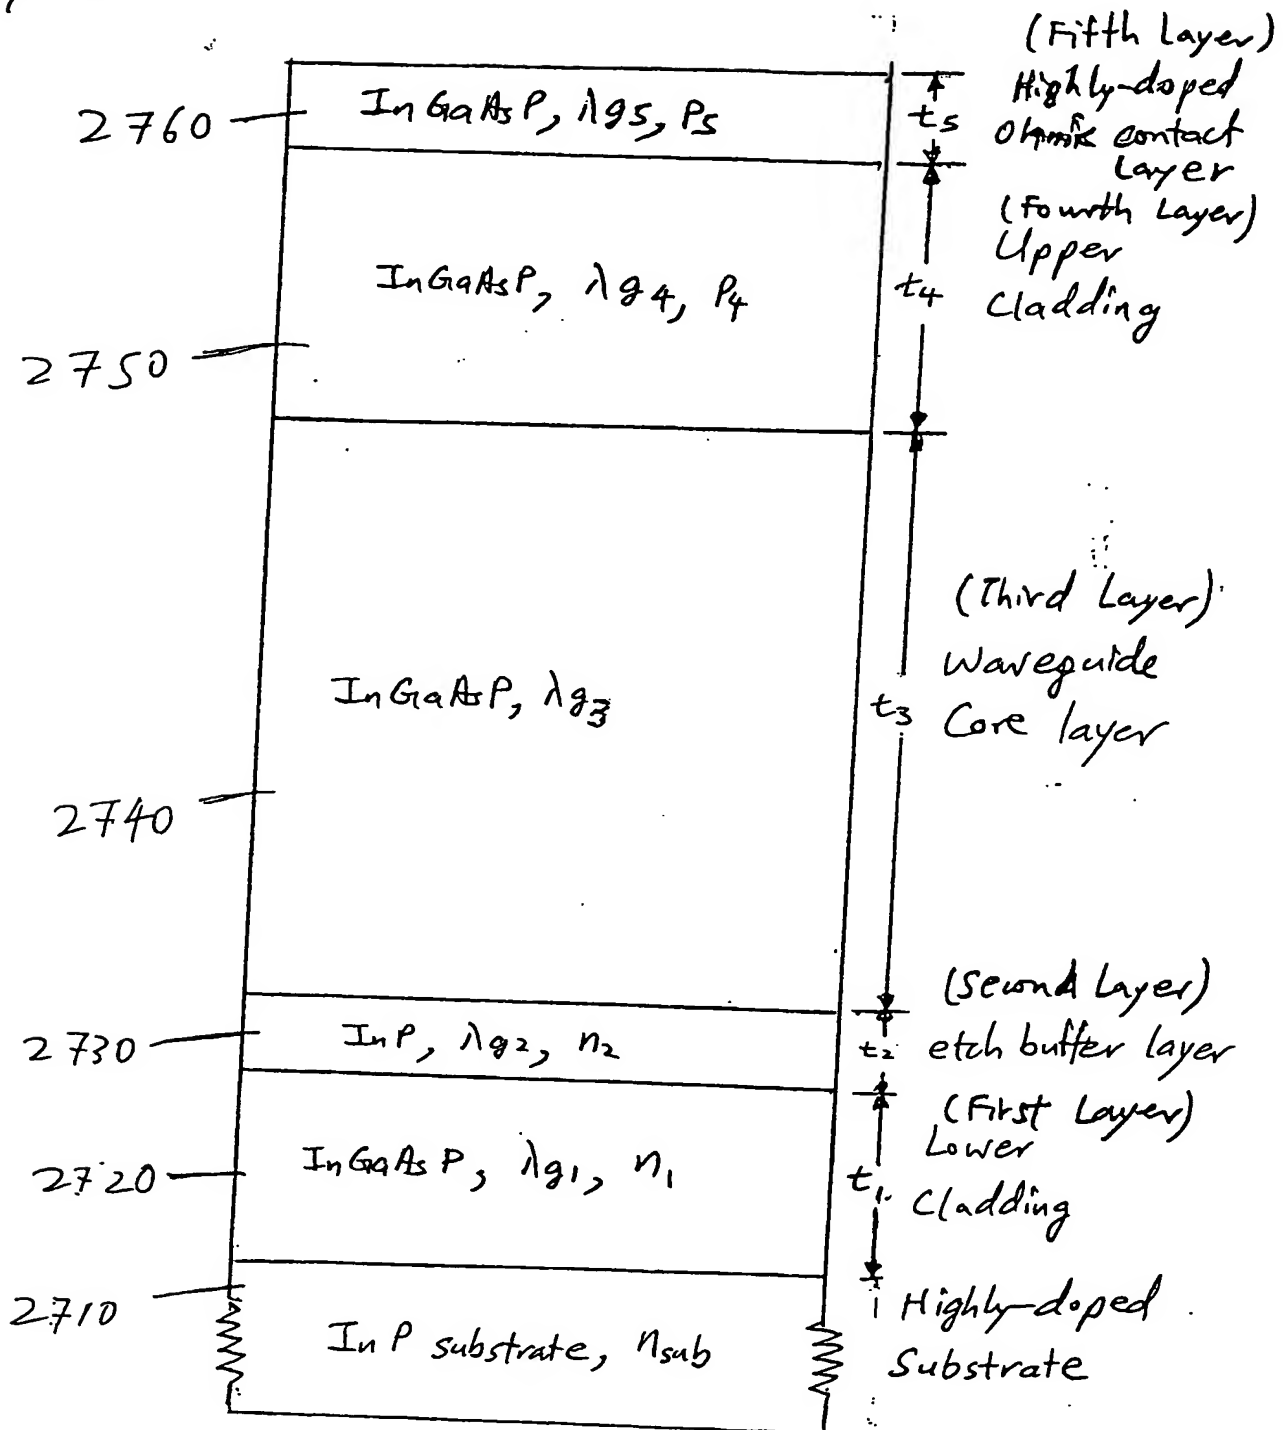 (Fifth Layer)
Highly-doped
Ohmic contact
Layer
2760
InGaAsP, λg5, P5
t5
(Fourth Layer)
Upper
Cladding
InGaAsP, λg4, P4
t4
2750
(Third Layer)
Waveguide
Core layer
InGaAsP, λg3
t3
2740
(Second Layer)
etch buffer layer
2730
InP, λg2, n2
t2
(First Layer)
Lower
Cladding
2720
InGaAsP, λg1, n1
t1
2710
Highly-doped
Substrate
InP substrate, nsub